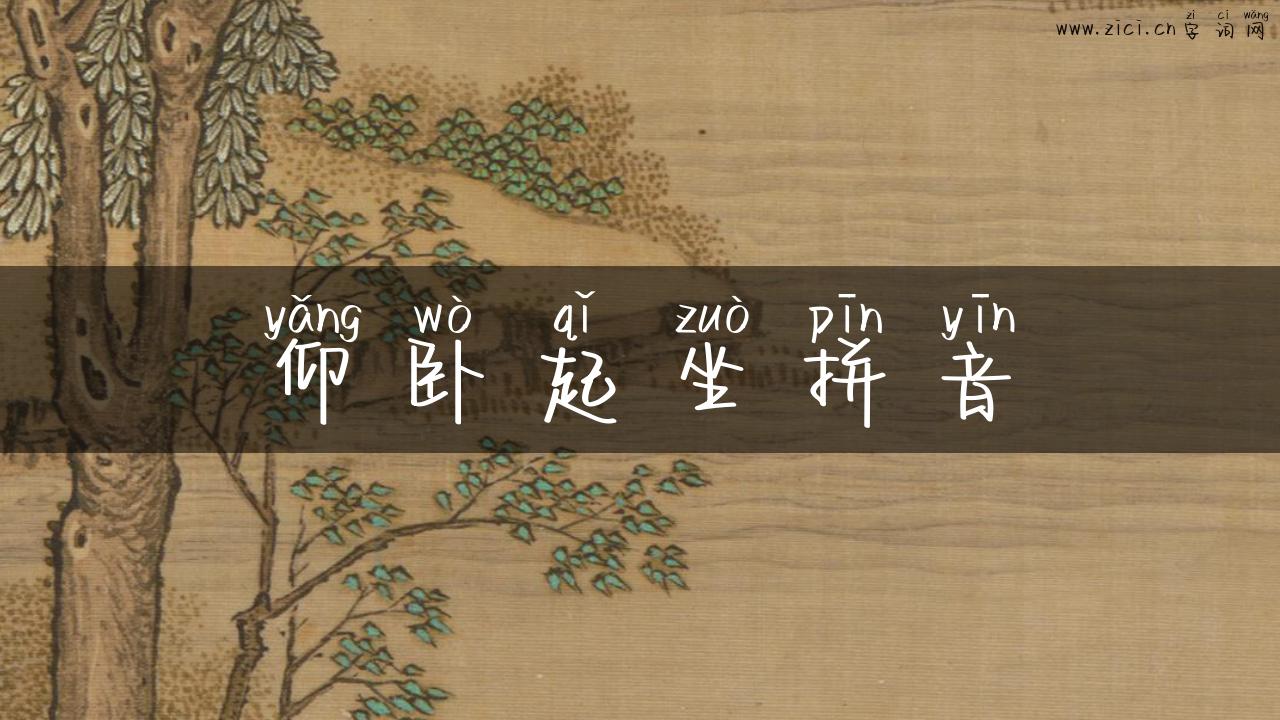 zì cí wǎng
www.zici.cn 字 词 网
yǎng wò qǐ zuò pīn yīn
仰 卧 起 坐 拼 音